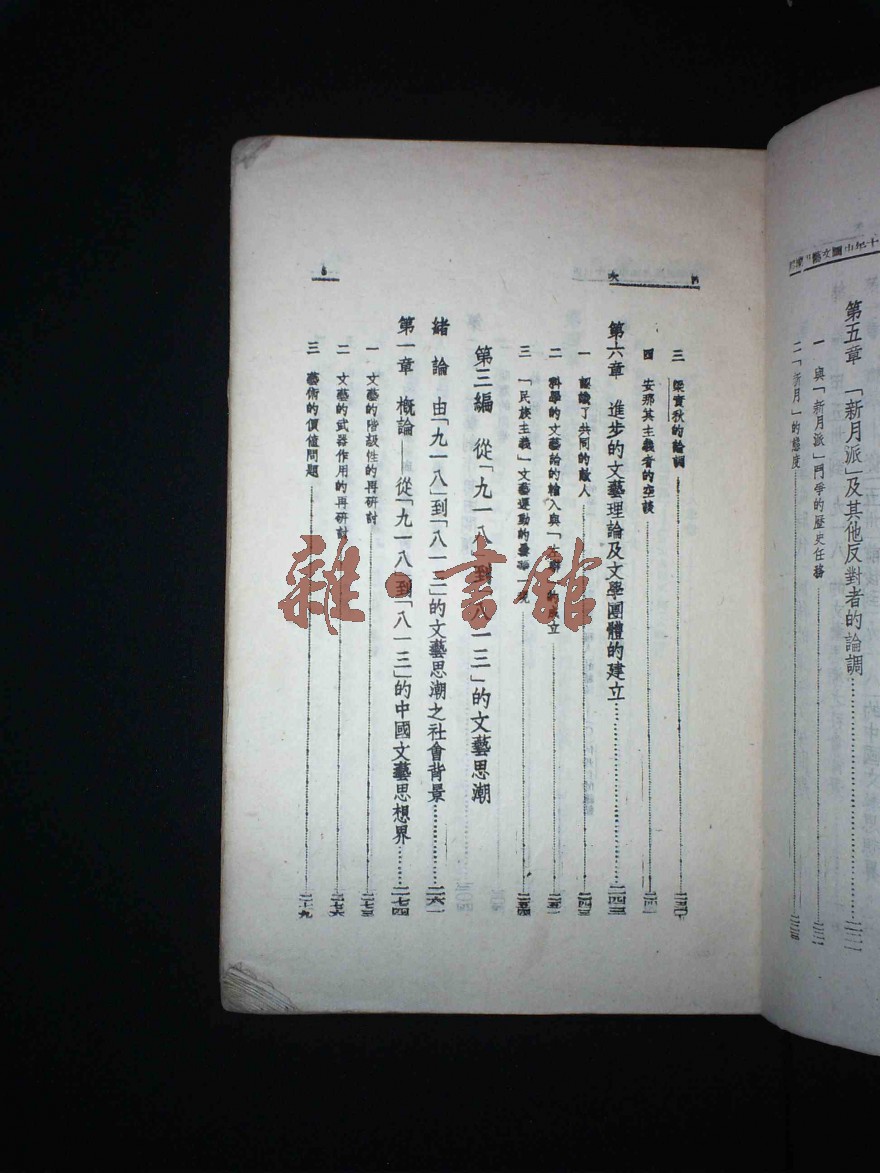 第五章 「新月派」及其他反對者的論調
一 與「新月派」鬥爭的歷史任務
二 「新月」的態度
目 次
三 梁實秋的論調
四 安那其主義者的空談 二四一
第六章 進步的文藝理論及文學團體的建立 二四三
一 認識了共同的敵人 二四三
二 科學的文藝論的輸入與「左聯」的成立 二五一
三 「民族主義」文藝運動的 二五四
第三編 從「九一八」到「八一三」的文藝思潮
緒 論 由「九一八」到「八一三」的文藝思潮之社會背景 二六一
第一章 概論——從「九一八」到「八一三」的中國文藝思想界 二七四
一 文藝的階級性的再研討 二七五
二 文藝的武器作用的再研討 二七六
三 藝術的價值問題 二七九
雜·書館